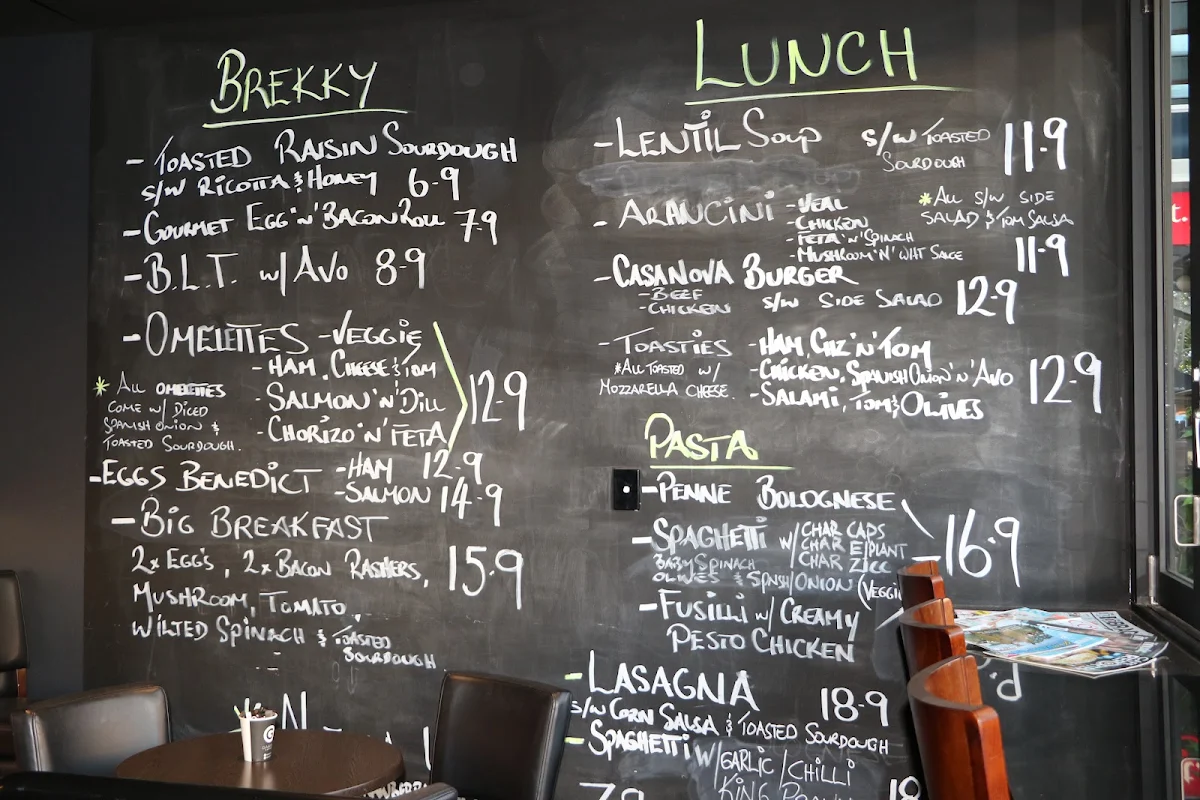 BREKKY
- TOASTED RAISIN SOURDOUGH
S/W RICOTTA & HONEY 6.9
- GOURMET EGG 'N' BACON ROLL 7.9
- B.L.T. W/ AVO 8.9
- OMELETTES - VEGGIE
- HAM, CHEESE & TOM
- SALMON 'N' DILL
- CHORIZO 'N' FETA
12.9
* ALL OMELETTES
COME W/ DICED
SPANISH ONION &
TOASTED SOURDOUGH.
- EGGS BENEDICT - HAM 12.9
- SALMON 14.9
- BIG BREAKFAST
2x EGG'S, 2x BACON RASHERS, 15.9
MUSHROOM, TOMATO,
WILTED SPINACH & TOASTED
SOURDOUGH
LUNCH
- LENTIL SOUP S/W TOASTED
SOURDOUGH
11.9
- ARANCINI - VEAL
- CHICKEN
- FETA 'N' SPINACH
- MUSHROOM 'N' WHT SAUCE
* ALL S/W SIDE
SALAD & TOM SALSA
11.9
- CASANOVA BURGER
- BEEF
- CHICKEN
S/W SIDE SALAD 12.9
- TOASTIES - HAM, CHZ 'N' TOM
- CHICKEN, SPANISH ONION 'N' AVO
- SALAMI, TOM & OLIVES
12.9
* ALL TOASTED W/
MOZZARELLA CHEESE.
PASTA
- PENNE BOLOGNESE
- SPAGHETTI W/ CHAR CAPS
CHAR E/PLANT
CHAR ZUCC
BABY SPINACH
OLIVES & SPNSH/ONION (VEGGI
- 16.9
- FUSILLI W/ CREAMY
PESTO CHICKEN
- LASAGNA 18.9
S/W CORN SALSA & TOASTED SOURDOUGH
- SPAGHETTI W/ GARLIC / CHILLI
KING PRAWN